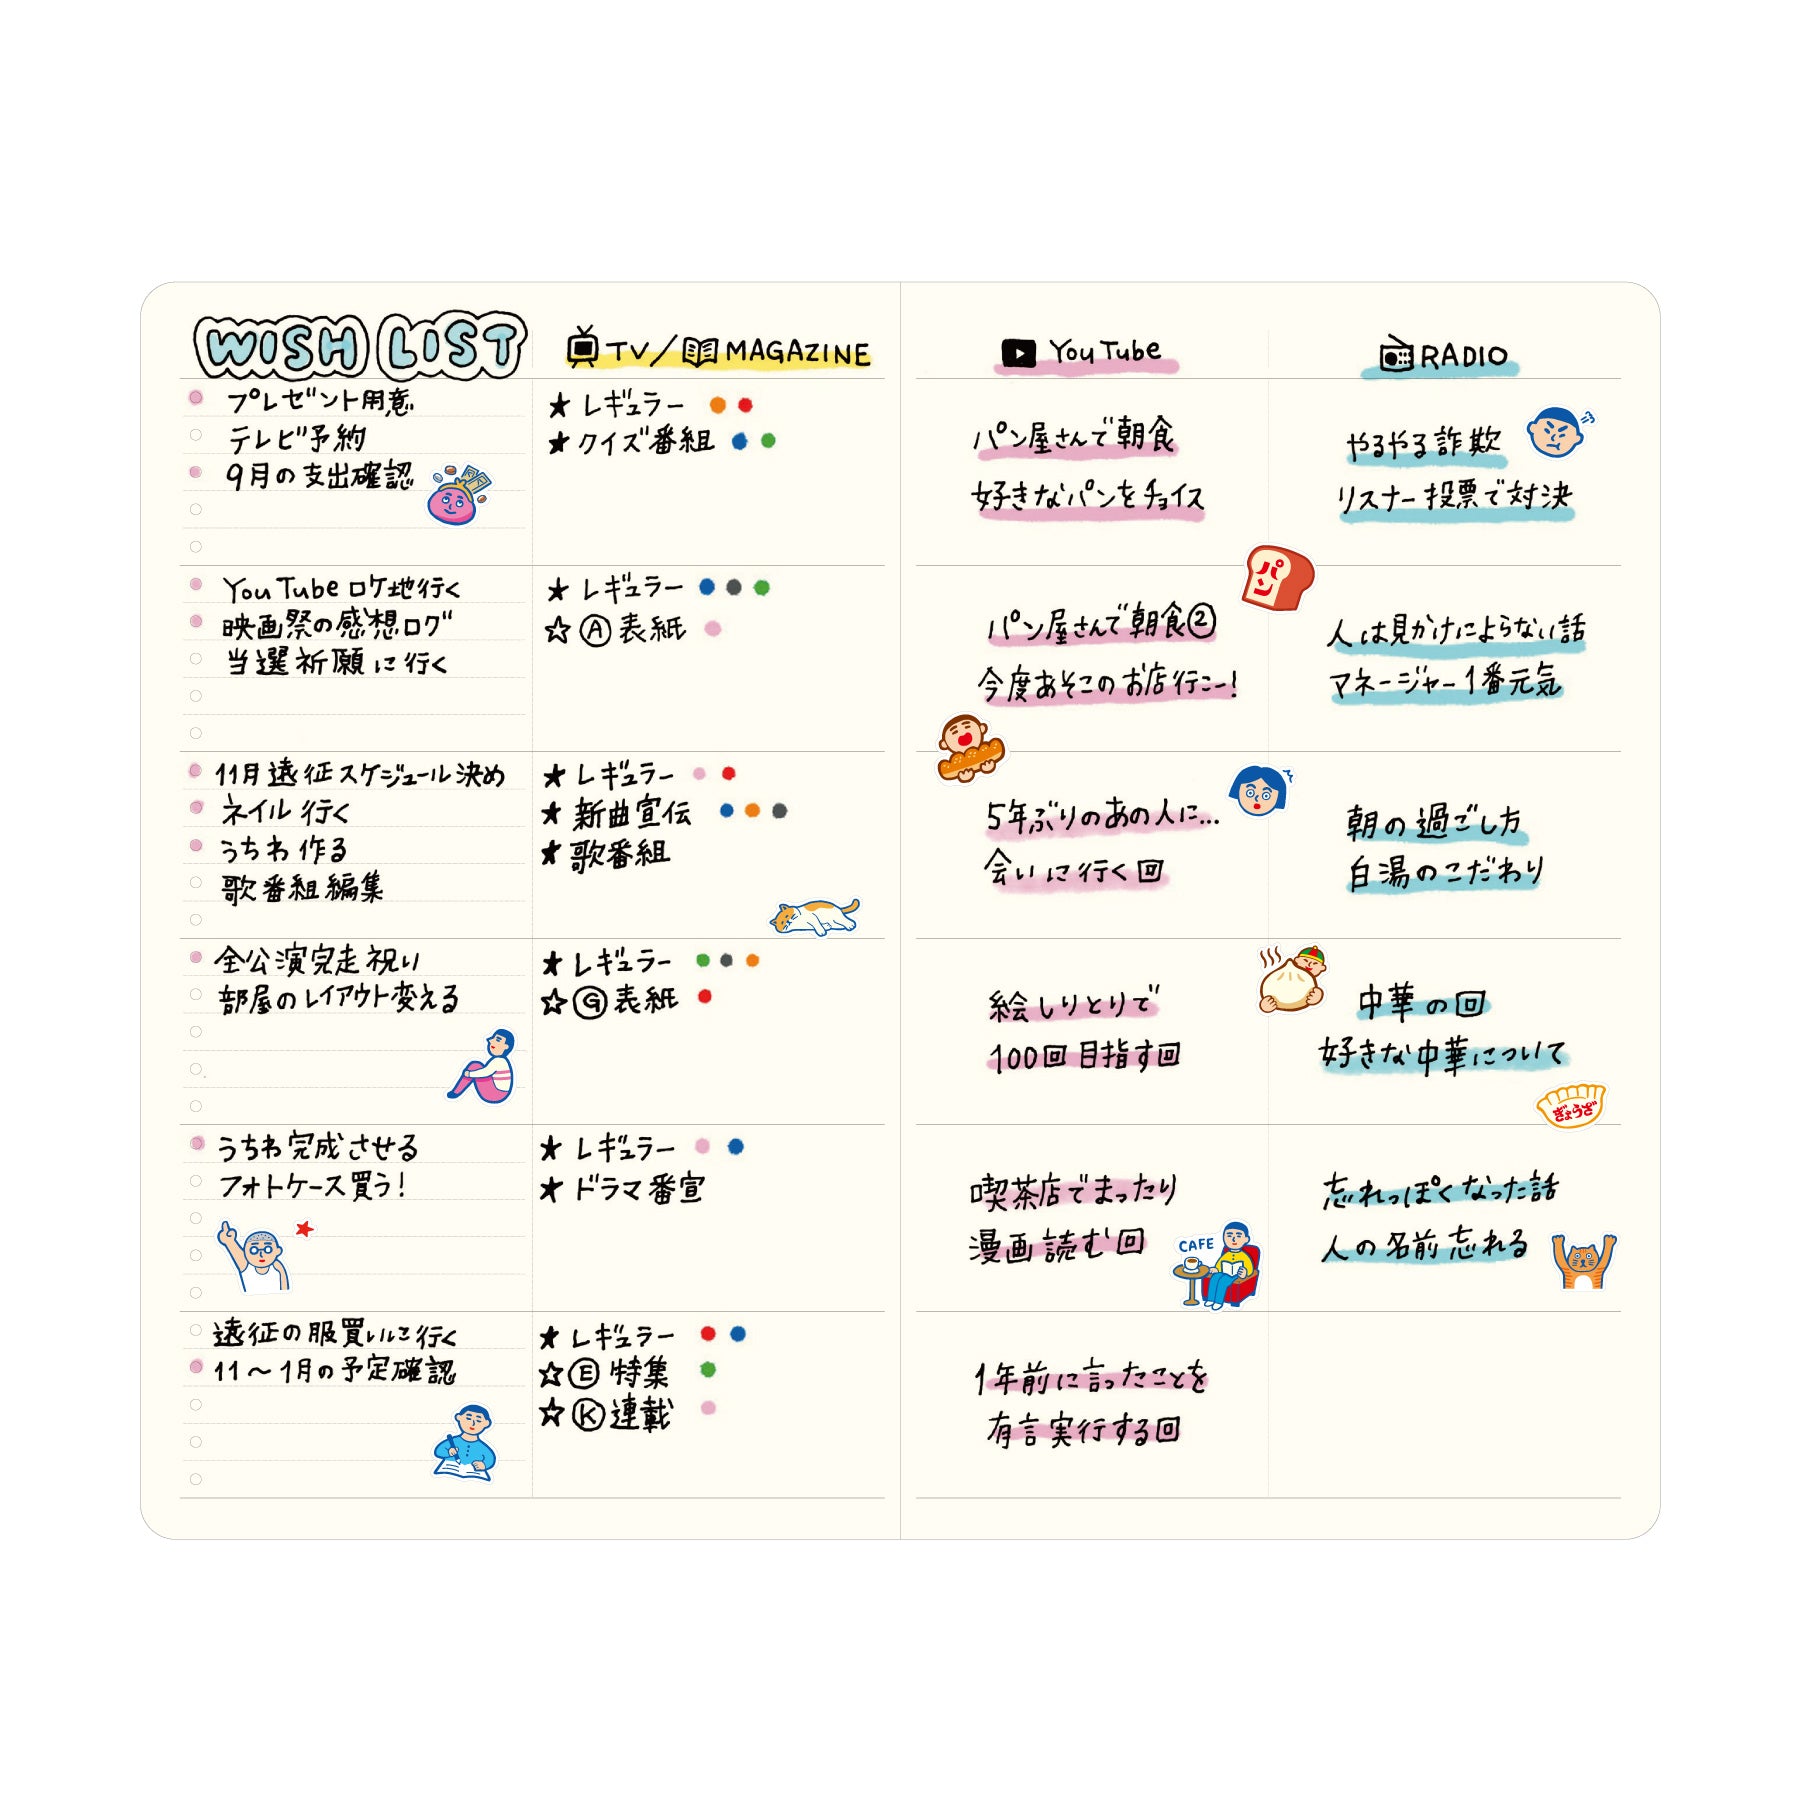 WISH LIST
TV/MAGAZINE
YouTube
RADIO
プレゼント用意
テレビ予約
9月の支出確認
★レギュラー
★クイズ番組
パン屋さんで朝食
好きなパンをチョイス
やるやる詐欺
リスナー投票で対決
パン
YouTubeロケ地行く
映画祭の感想ログ
当選祈願に行く
★レギュラー
☆Ⓐ表紙
パン屋さんで朝食②
今度あそこのお店行こー!
人は見かけによらない話
マネージャー1番元気
11月遠征スケジュール決め
ネイル行く
うちわ作る
歌番組編集
★レギュラー
★新曲宣伝
★歌番組
5年ぶりのあの人に…
会いに行く回
朝の過ごし方
白湯のこだわり
全公演完走祝い
部屋のレイアウト変える
★レギュラー
☆Ⓖ表紙
絵しりとりで
100回目指す回
中華の回
好きな中華について
ぎょうざ
うちわ完成させる
フォトケース買う!
★レギュラー
★ドラマ番宣
喫茶店でまったり
漫画読む回
CAFE
忘れっぽくなった話
人の名前忘れる
遠征の服買いに行く
11〜1月の予定確認
★レギュラー
☆Ⓔ特集
☆Ⓚ連載
1年前に言ったことを
有言実行する回